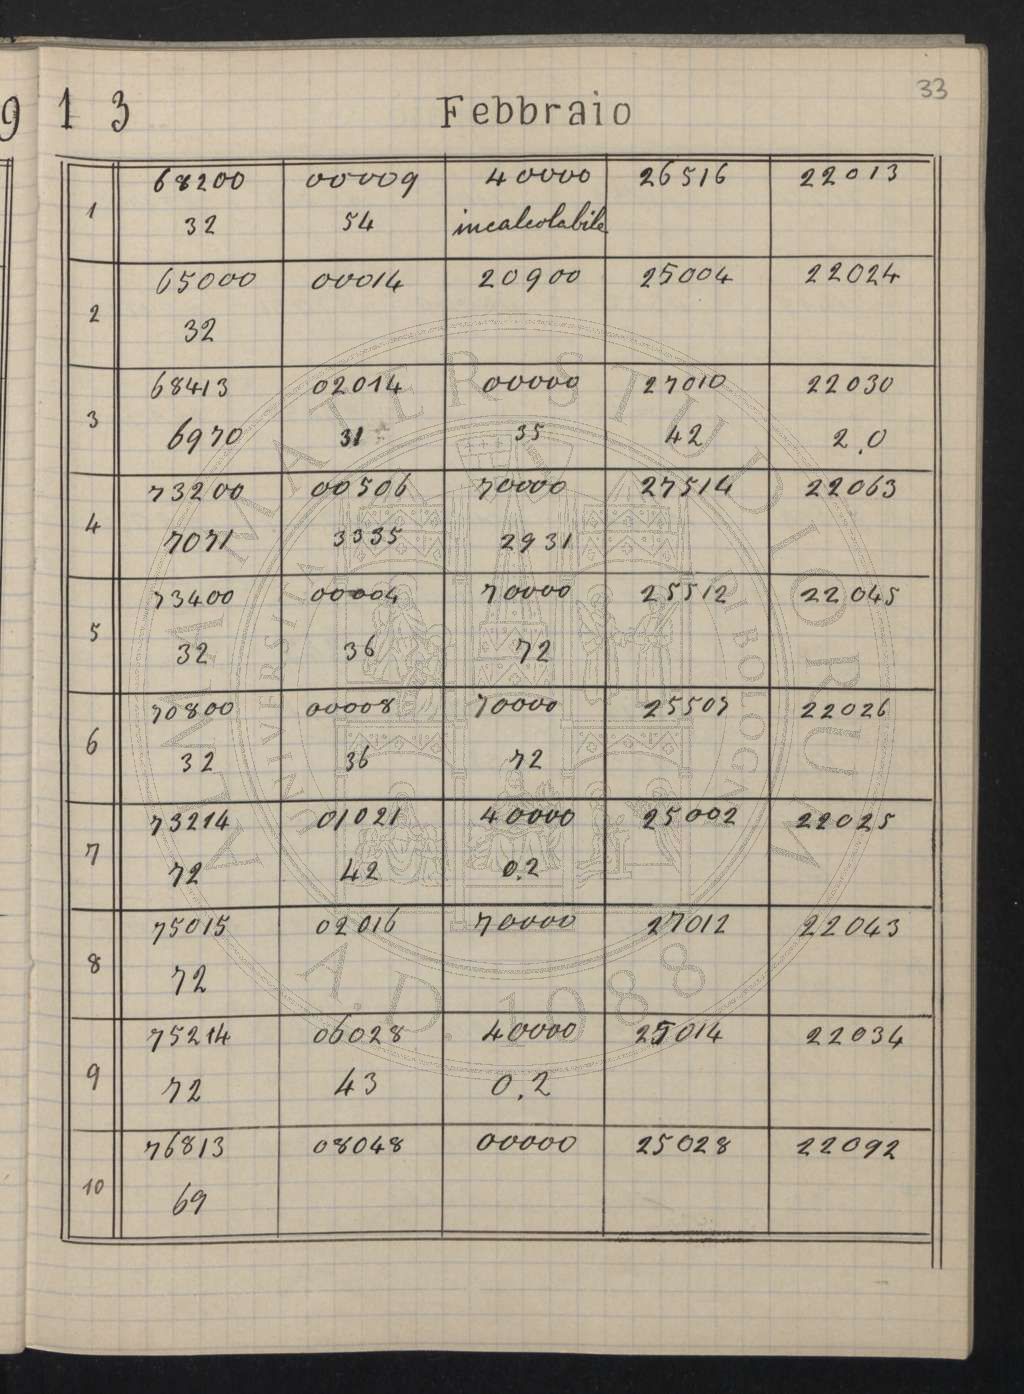 33
9 1 3 Febbraio
1 68200 00009 40000 26516 22013
32 54 incalcolabile
2 65000 00014 20900 25004 22024
32
3 68413 02014 00000 27010 22030
6970 31 35 42 2.0
4 73200 00506 70000 27514 22063
7071 3335 2931
5 73400 00004 70000 25512 22045
32 36 72
6 70800 00008 70000 25507 22026
32 36 72
7 73214 01021 40000 25002 22025
72 42 0.2
8 75015 02016 70000 27012 22043
72
9 75214 06028 40000 25014 22034
72 43 0.2
10 76813 08048 00000 25028 22092
69
ALMA MATER STUDIORUM
UNIVERSITÀ DI BOLOGNA
A.D. 1088